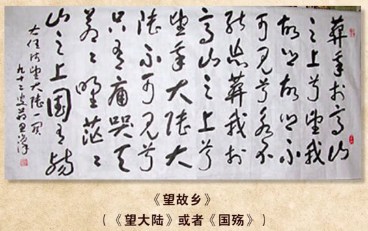 葬我於高山
之上兮望我
故乡故乡不
可见兮永不
能忘葬我於
高山之上兮
望我大陆大
陆不可见兮
只有痛哭天
苍々野茫々
山之上国有殇
右任诗望大陆一首
九十二叟
《望故乡》
(《望大陆》或者《国殇》)